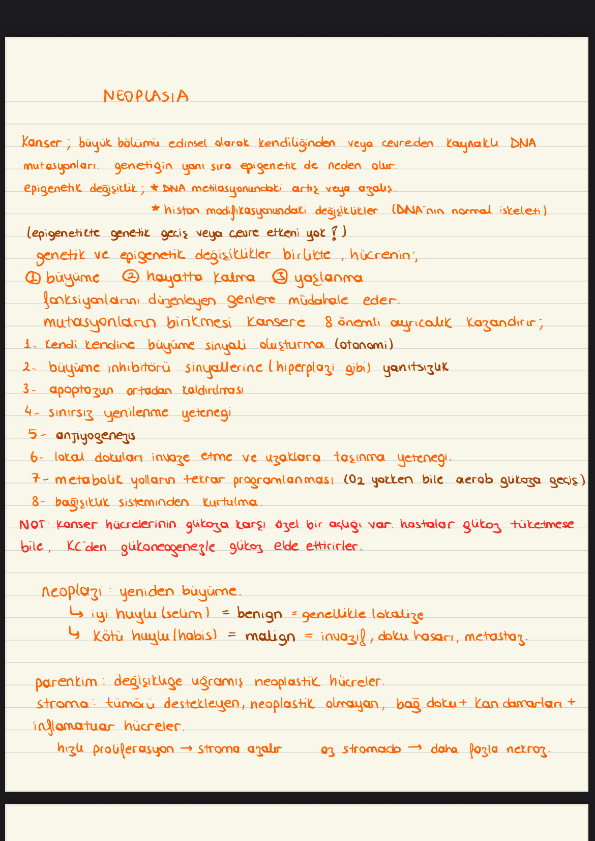 NEOPLASIA
Kanser ; büyük bölümü edinsel olarak kendiliğinden veya çevreden kaynaklı DNA
mutasyonları. genetiğin yanı sıra epigenetik de neden olur.
epigenetik değişiklik ; * DNA metilasyonundaki artış veya azalış.
* histon modifikasyonundaki değişiklikler (DNA'nın normal iskeleti)
(epigenetikte genetik geçiş veya çevre etkeni yok ! )
genetik ve epigenetik değişiklikler birlikte , hücrenin ;
① büyüme ② hayatta kalma ③ yaşlanma
fonksiyonlarını düzenleyen genlere müdahale eder.
mutasyonların birikmesi kansere 8 önemli ayrıcalık kazandırır ;
1- kendi kendine büyüme sinyali oluşturma (otonomi)
2- büyüme inhibitörü sinyallerine (hiperplazi gibi) yanıtsızlık
3- apoptozun ortadan kaldırılması
4- sınırsız yenilenme yeteneği
5- anjiyogenezis
6- lokal dokuları invaze etme ve uzaklara taşınma yeteneği.
7- metabolik yolların tekrar programlanması (O2 yokken bile aerob glikoza geçiş)
8- bağışıklık sisteminden kurtulma.
NOT: kanser hücrelerinin glikoza karşı özel bir açlığı var. hastalar glikoz tüketmese
bile , KC'den glukoneogenezle glikoz elde ettirirler.
neoplazi : yeniden büyüme.
↳ iyi huylu (selim) = benign = genellikle lokalize
↳ kötü huylu (habis) = malign = invazif , doku hasarı, metastaz.
parenkim : değişikliğe uğramış neoplastik hücreler.
stroma : tümörü destekleyen, neoplastik olmayan, bağ doku + kan damarları +
inflamatuar hücreler.
hızlı proliferasyon → stroma azalır az stromada → daha fazla nekroz.